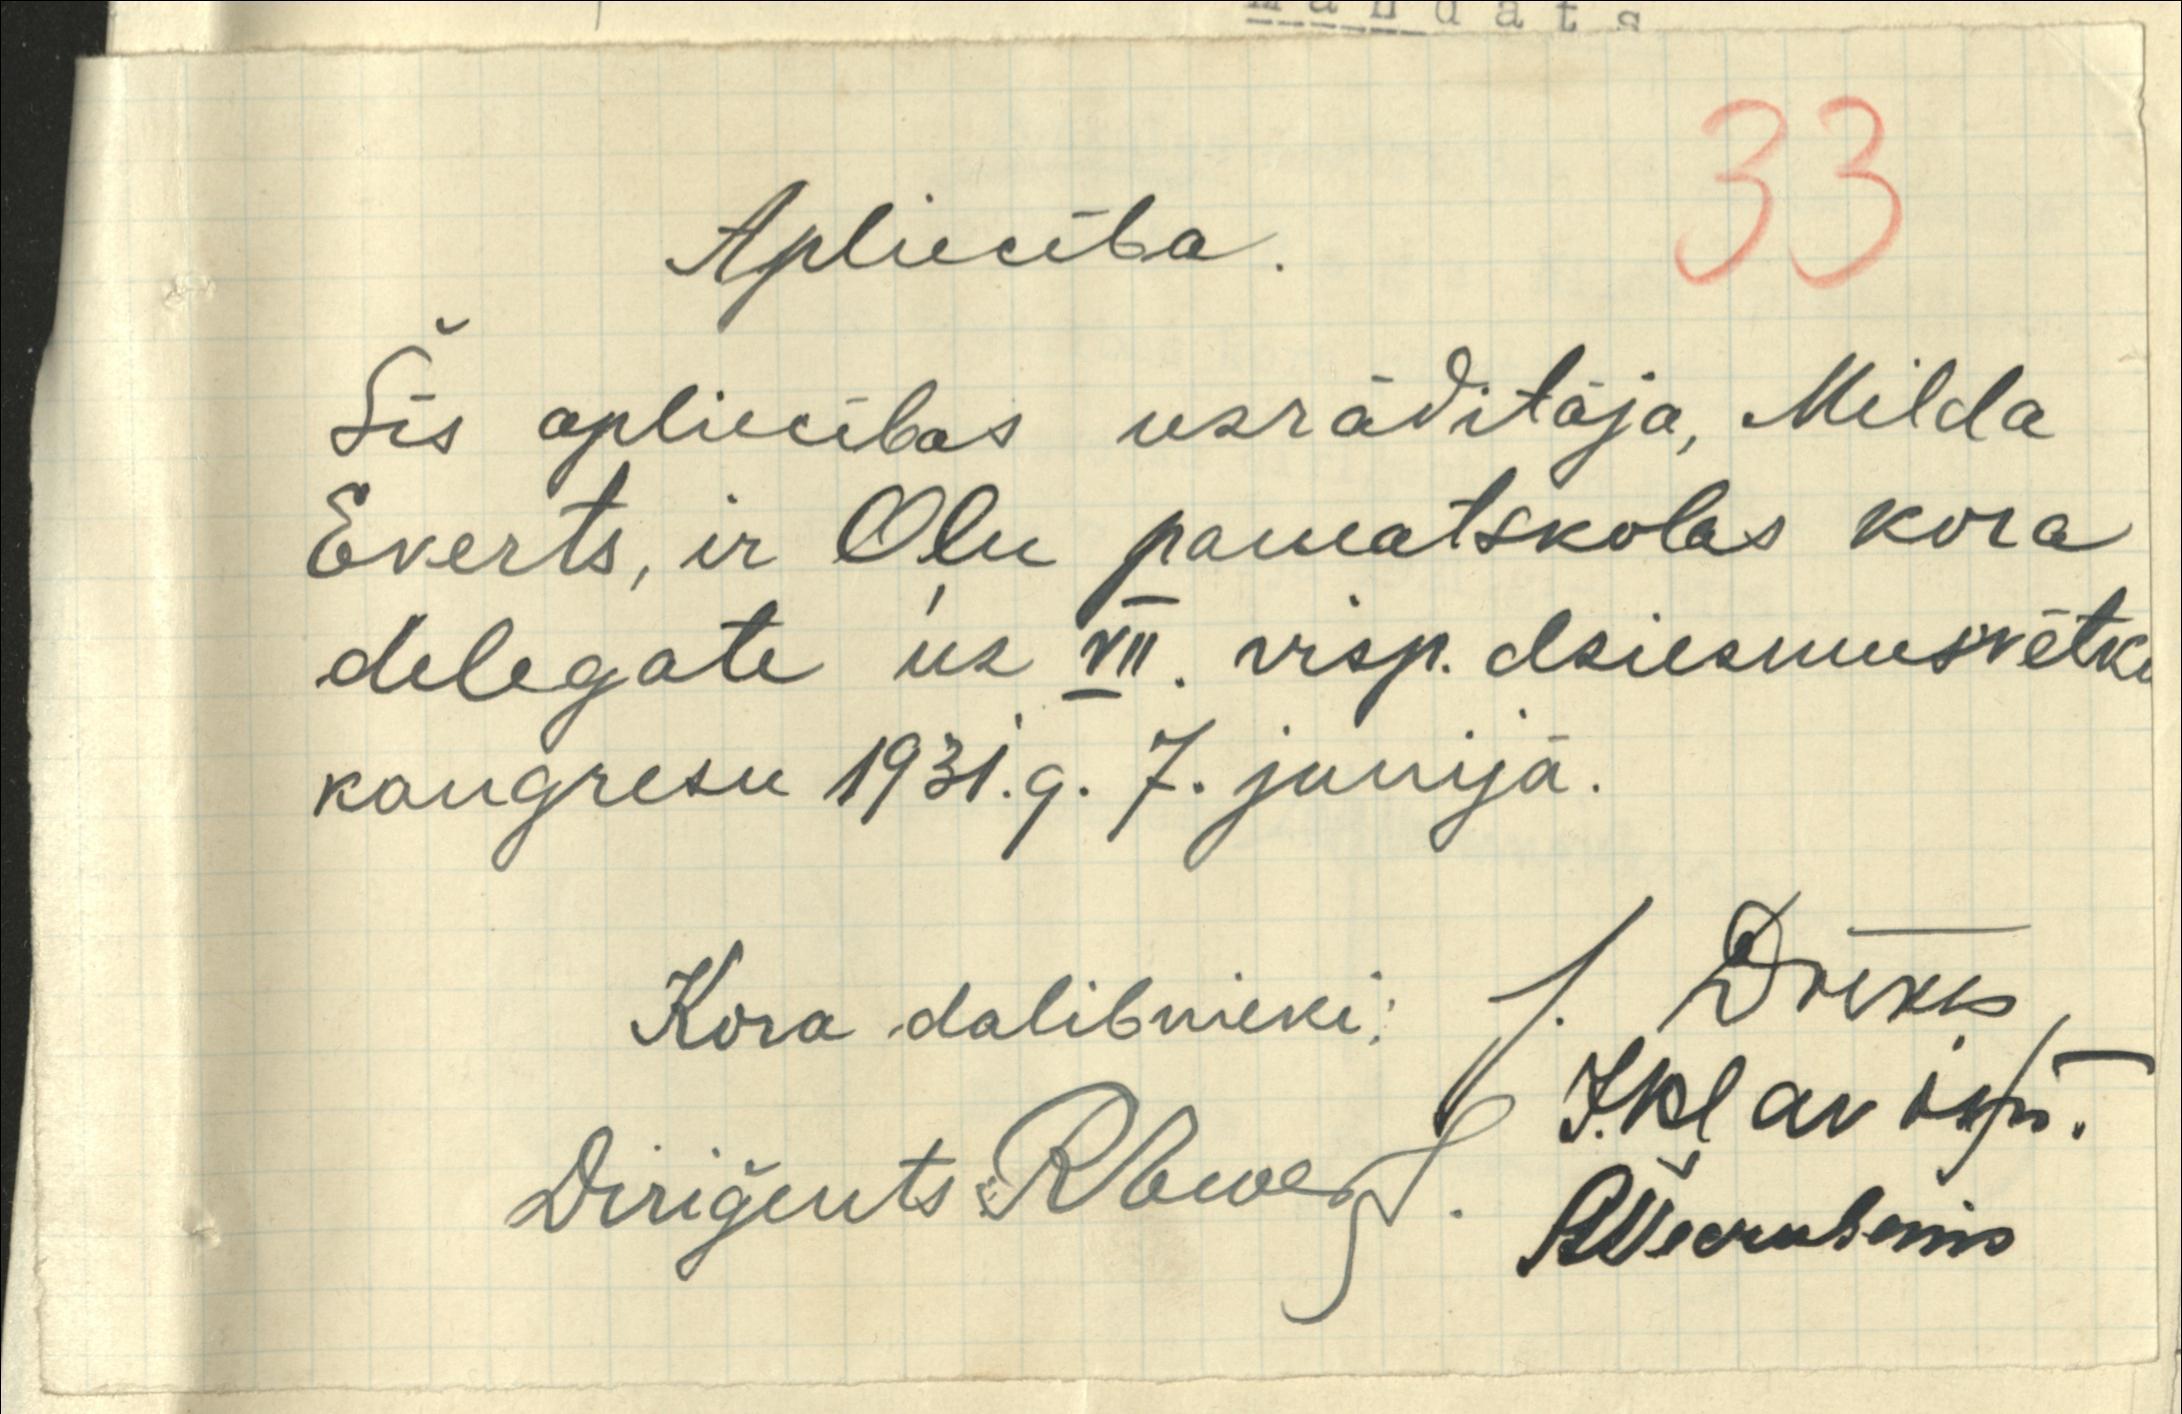 Mandats
33
Apliecība.
Šīs apliecības uzrādītāja, Milda
Everts, ir Oļu pamatskolas kora
delegate uz VII. visp. dziesmusvētku
kongresu 1931.g. 7. junijā.
Kora dalibnieki:
J.
J. Kļaviņš.
Diriģents: